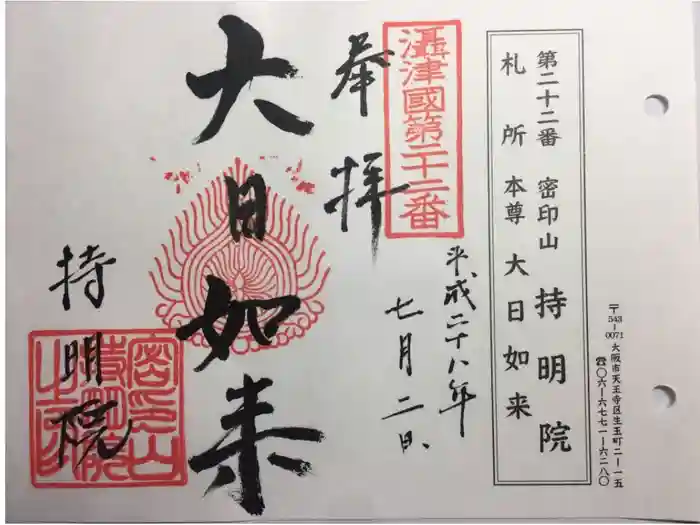 〒543-0071 大阪市天王寺区生玉町二ー一五
☎〇六ー六七七一ー六二八〇
第二十二番 密印山 持明院
札所本尊大日如来
攝津國第二十二番
奉拝
平成二十八年
七月二日
大日如来
持明院